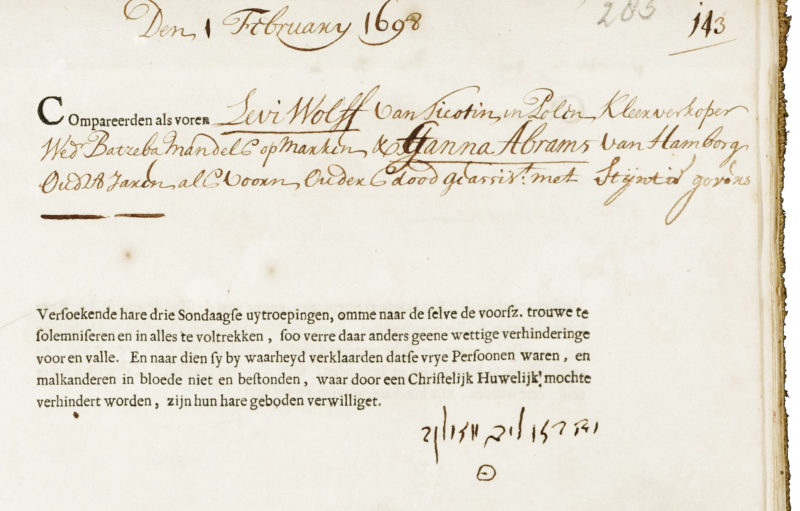 Den 1 February 1698
203
143
Compareerden als voren Levi Wolff van Ticotin, in Polen Kleerverkoper
Wedr Batzeba Mandels op Marken, & Hanna Abrams van Hamborg
Oud 28 Jaren, als voorn, Ouders dood geassist. met Stijntie govers
Versoekende hare drie Sondaagse uytroepingen, omme naar de selve de voorsz. trouwe te
solemniseren en in alles te voltrekken, soo verre daar anders geene wettige verhinderinge
voor en valle. En naar dien sy by waarheyd verklaarden datse vrye Persoonen waren, en
malkanderen in bloede niet en bestonden, waar door een Christelijk Huwelijk mochte
verhindert worden, zijn hun hare geboden verwilliget.